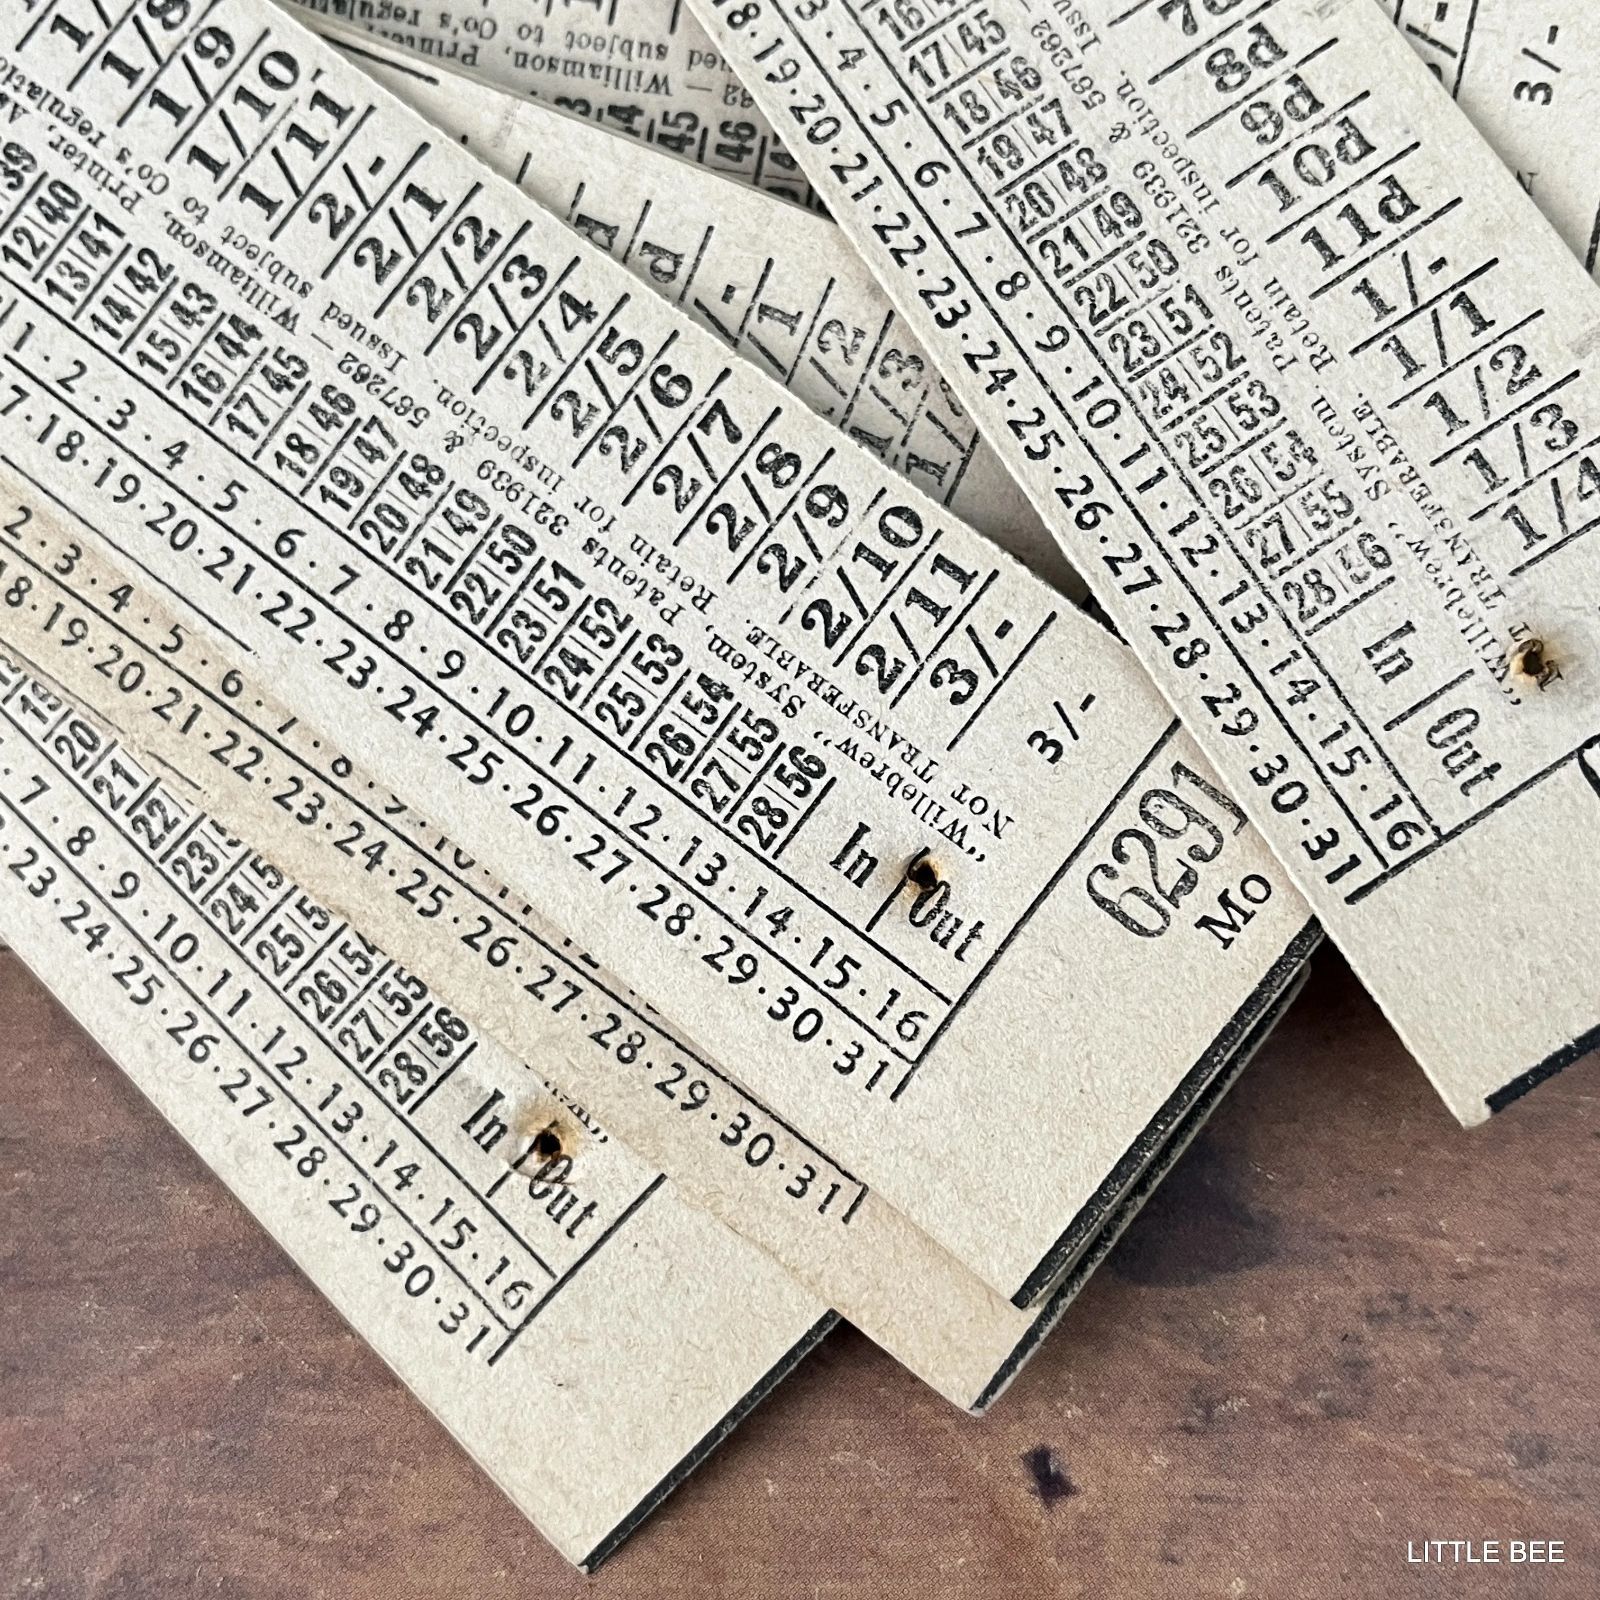 1/8
1/9
1/10
1/11
2/-
2/1
2/2
2/3
2/4
2/5
2/6
2/7
2/8
2/9
2/10
2/11
3/-
3/-
6291
Mo
"Willebrew" System, Patents 321939 & 567262 — Williamson, Printer,
NOT TRANSFERABLE. Retain for inspection. Issued subject to Co's
12 40
13 41
14 42
15 43
16 44
17 45
18 46
19 47
20 48
21 49
22 50
23 51
24 52
25 53
26 54
27 55
28 56
In
Out
1 · 2 · 3 · 4 · 5 · 6 · 7 · 8 · 9 · 10 · 11 · 12 · 13 · 14 · 15 · 16
17 · 18 · 19 · 20 · 21 · 22 · 23 · 24 · 25 · 26 · 27 · 28 · 29 · 30 · 31
8d
9d
10d
11d
1/-
1/1
1/2
1/3
1/4
"Willebrew" System, Patents 321939 & 567262
TRANSFERABLE. Retain for inspection.
17 45
18 46
19 47
20 48
21 49
22 50
23 51
24 52
25 53
26 54
27 55
28 56
In
Out
3 · 4 · 5 · 6 · 7 · 8 · 9 · 10 · 11 · 12 · 13 · 14 · 15 · 16
18 · 19 · 20 · 21 · 22 · 23 · 24 · 25 · 26 · 27 · 28 · 29 · 30 · 31
3/-
Williamson, Printer,
subject to Co's
45
46
d
1/1
1/2
1/3
2 · 3 · 4 · 5 · 6 · 7 · 8 · 9 · 10 · 11
18 · 19 · 20 · 21 · 22 · 23 · 24 · 25 · 26 · 27 · 28 · 29 · 30 · 31
19
20
21
22
23
24
25
26 54
27 55
28 56
In
Out
7 · 8 · 9 · 10 · 11 · 12 · 13 · 14 · 15 · 16
23 · 24 · 25 · 26 · 27 · 28 · 29 · 30 · 31
LITTLE BEE